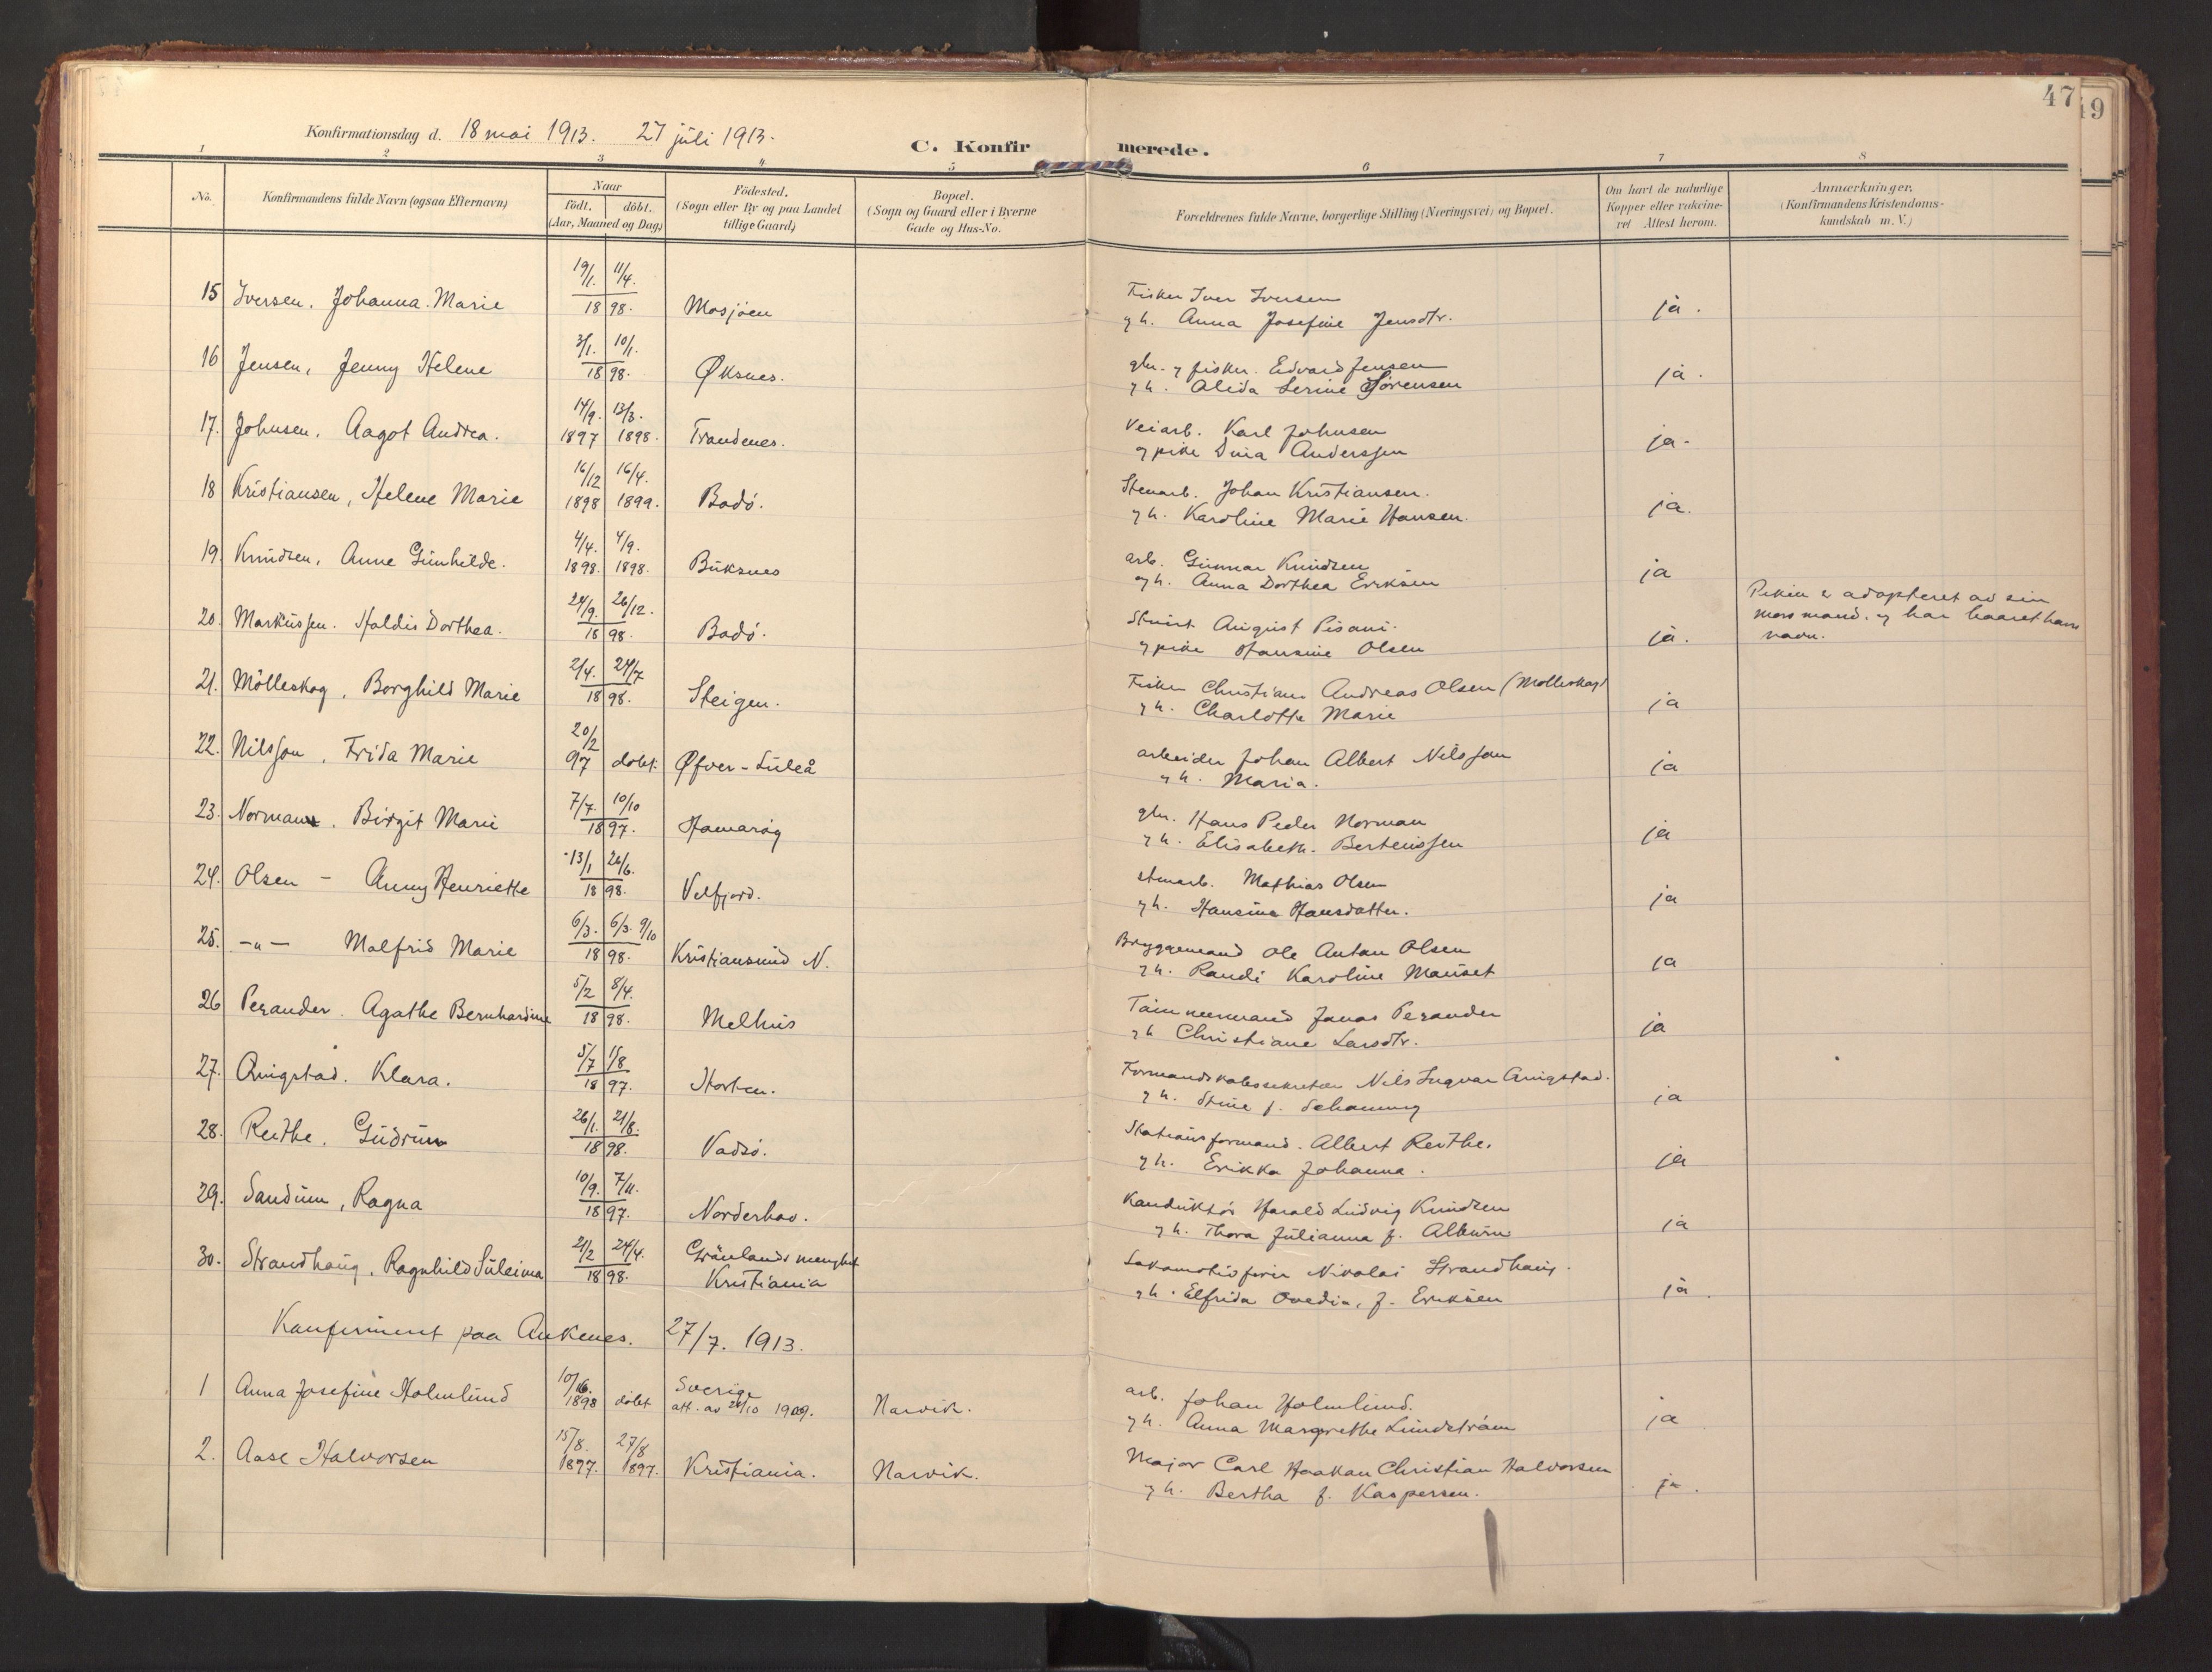 47
49
Konfirmationsdag d. 18 mai 1913. 27 juli 1913.
C. Konfirmerede.
1 2 3 4 5 6 7 8
No. Konfirmandens fulde Navn (ogsaa Efternavn) Naar födt. döbt. (Aar, Maaned og Dag) Födested. (Sogn eller By og paa Landet tillige Gaard) Bopæl. (Sogn og Gaard eller i Byerne Gade og Hus-No. Forældrenes fulde Navne, borgerlige Stilling (Næringsvei) og Bopæl. Om havt de naturlige Kopper eller vakcineret Attest herom. Anmærkninger. (Konfirmandens Kristendomskundskab m. V.)
15 Iversen, Johanna Marie 19/1. 11/4. 1898. Mosjöen Fisker Iver Iversen
g h. Anna Josefine Jensdtr. ja.
16 Jensen, Jenny Helene 3/1. 10/1. 1898. Øksnes. gbr. g fisker. Edvard Jensen
g h. Alida Serine Sörensen ja.
17. Johnsen, Aagot Andrea. 14/9. 13/3. 1897 1898. Trandenes. Veiarb. Karl Johnsen
g pike Dina Anderssen ja.
18 Kristiansen, Helene Marie 16/12 16/4. 1898 1899. Bodö. Stenarb. Johan Kristiansen.
g h. Karoline Marie Hansen. ja.
19. Knudsen, Anne Gunhilde. 4/4. 4/9. 1898. 1898. Buksnes arb. Gunnar Knudsen
g h. Anna Dorthea Eriksen ja
20. Markussen. Haldis Dorthea. 24/9. 26/12. 1898. Bodö. August Pisani.
g pike Hansine Olsen ja. Piken e adopteret av sin
mors mand. g har baaret hans
navn.
21. Mölleskog, Borghild Marie 2/4. 24/7 1898. Steigen. Fisker Christian Andreas Olsen (Molleskog)
g h. Charlotte Marie ja
22. Nilsson, Frida Marie 20/2 97 döbt. Øfver-Luleå arbeider Johan Albert Nilsson
g h. Maria. ja
23. Norman, Birgit Marie 7/7. 10/10 1897. Hamaröy gbr. Hans Peder Norman
g h. Elisabeth. Berteussen ja
24. Olsen - Anny Henriette 13/1 26/6. 1898. Velfjord. stenarb. Mathias Olsen
g h. Hansine Hansdatter. ja
25. -"- Malfrid Marie 6/3. 6/3. 9/10 1898. Kristiansund N. Bryggemand Ole Antan Olsen
g h. Randi Karoline Mauset ja
26 Perander. Agathe Bernhardine 5/2 8/4. 1898. Melhus Tömmermand Jonas Perander
g h Christiane Larsdtr. ja
27. Qvigstad. Klara. 5/7 15/8 1897. Horten. Formandskabssekretær Nils Ingvar Qvigstad.
g h. Stine f. Schanning ja
28. Reithe. Gudrun 26/1. 21/8. 1898. Vadsö. Stationsformand. Albert Reithe.
g h. Erikka Johanna. ja
29. Sandum, Ragna 10/9. 7/11. 1897. Norderhov. Konduktör Harald Ludvig Knudsen
g h. Thora Julianna f. Alburn ja
30. Strandhaug, Ragnhild Suleima 21/2 24/4. 1898. Grönlands menghet
Kristiania Lokomotivförer Nikolai Strandhaug.
g h. Elfrida Ovedia, f. Eriksen ja.
Konfirmert paa Ankenes. 27/7. 1913.
1 Anna Josefine Holmlund 10/16. 1898 döbt Sverige
att. av 24/10 1909. Narvik. arb. Johan Holmlund.
g h. Anna Margrethe Lundström ja
2. Aase Halvorsen 15/8. 27/8 1897. 1897. Kristiania. Narvik. Major Carl Haakan Christian Halvorsen
g h. Bertha f. Kaspersen. ja.